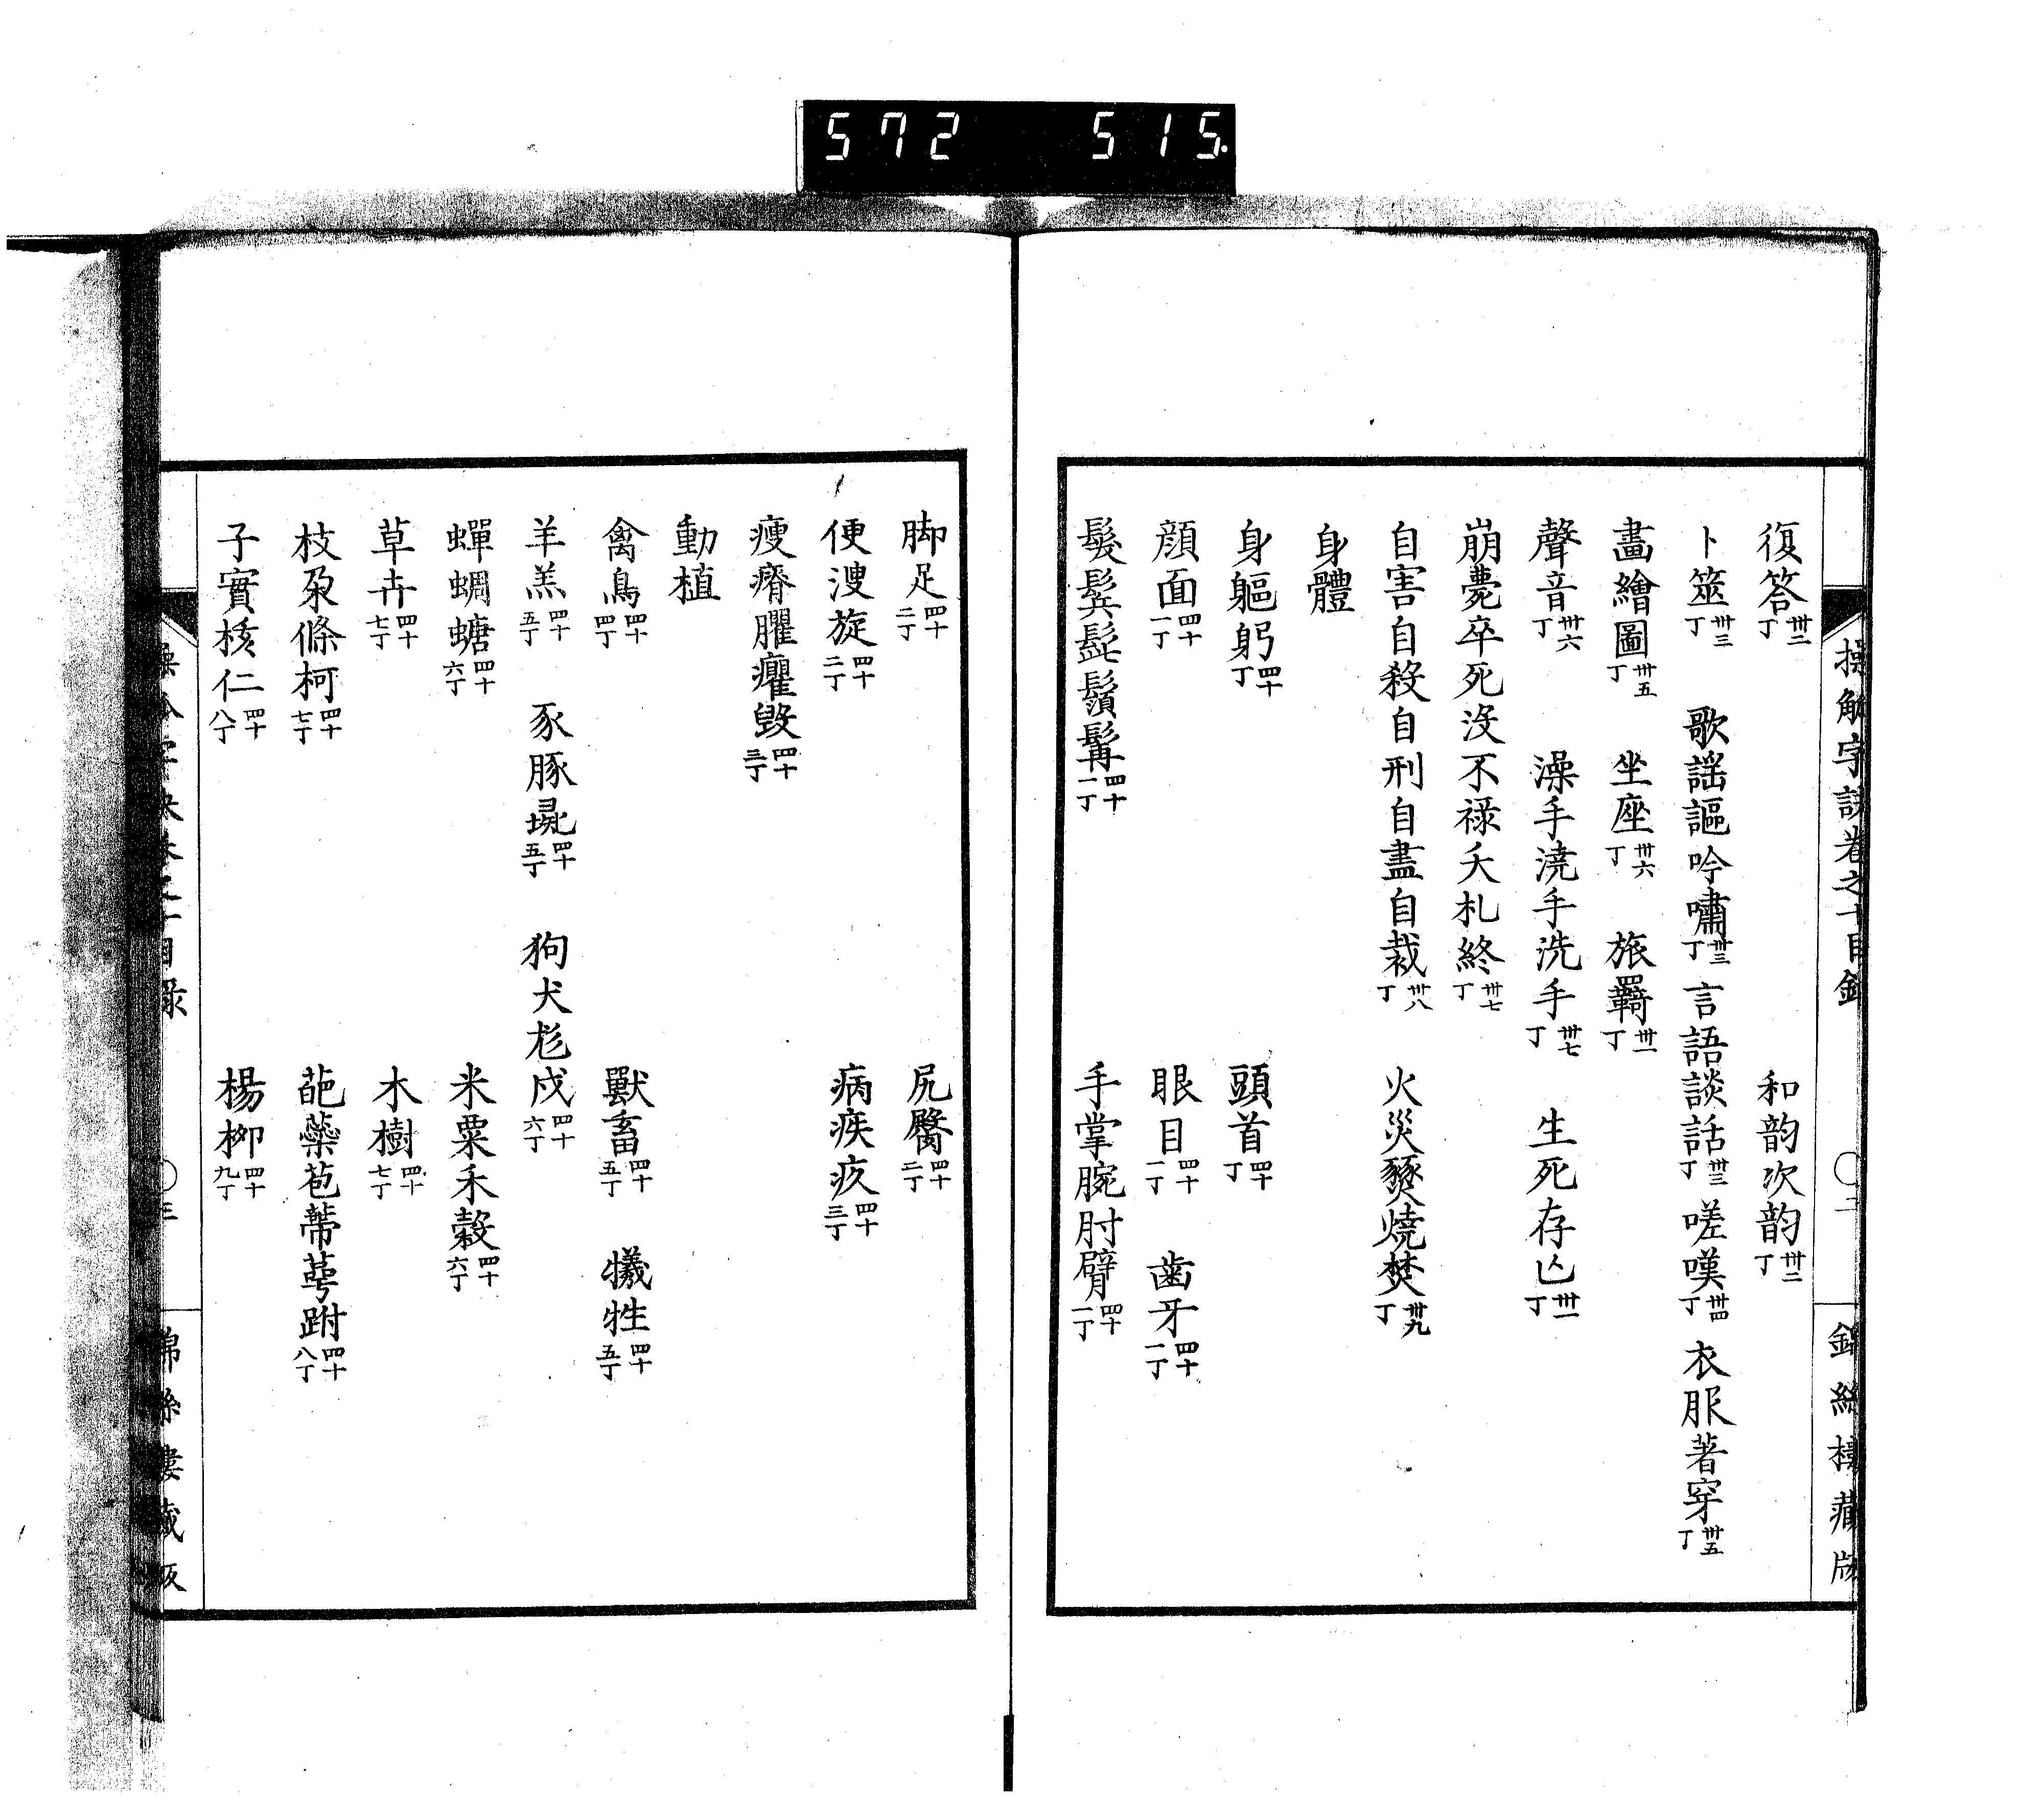 572 515.
操觚字訣卷之十目錄 〇二 錦絲樓藏版
復答 卅二丁 和韵次韵 卅二丁
卜筮 卅三丁 歌謡謳吟嘯 卅三丁 言語談話 卅三丁 嗟嘆 卅四丁 衣服著穿 卅五丁
畵繪圖 卅五丁 坐座 卅六丁 旅羇 卅一丁
聲音 卅六丁 澡手澆手洗手 卅七丁 生死存亾 卅一丁
崩薨卒死沒不禄夭札終 卅七丁
自害自殺自刑自盡自裁 卅八丁 火災燹燒焚 卅九丁
身體
身軀躬 四十丁 頭首 四十丁
顔面 四十一丁 眼目 四十一丁 歯牙 四十一丁
髮鬂髭鬚髯 四十一丁 手掌腕肘臂 四十一丁
脚足 四十二丁 尻臀 四十二丁
便溲旋 四十二丁 病疾疚 四十三丁
瘦瘠臞癯毀 四十三丁
動植
禽鳥 四十四丁 獸畜 四十五丁 犧牲 四十五丁
羊羔 四十五丁 豕豚彘 四十五丁 狗犬尨戌 四十六丁
蟬蜩螗 四十六丁 米粟禾穀 四十六丁
草卉 四十七丁 木樹 四十七丁
枝朶條柯 四十七丁 葩蘂苞蔕萼跗 四十八丁
子實核仁 四十八丁 楊栁 四十九丁
操觚字訣卷之十目录 〇三 錦絲樓藏版